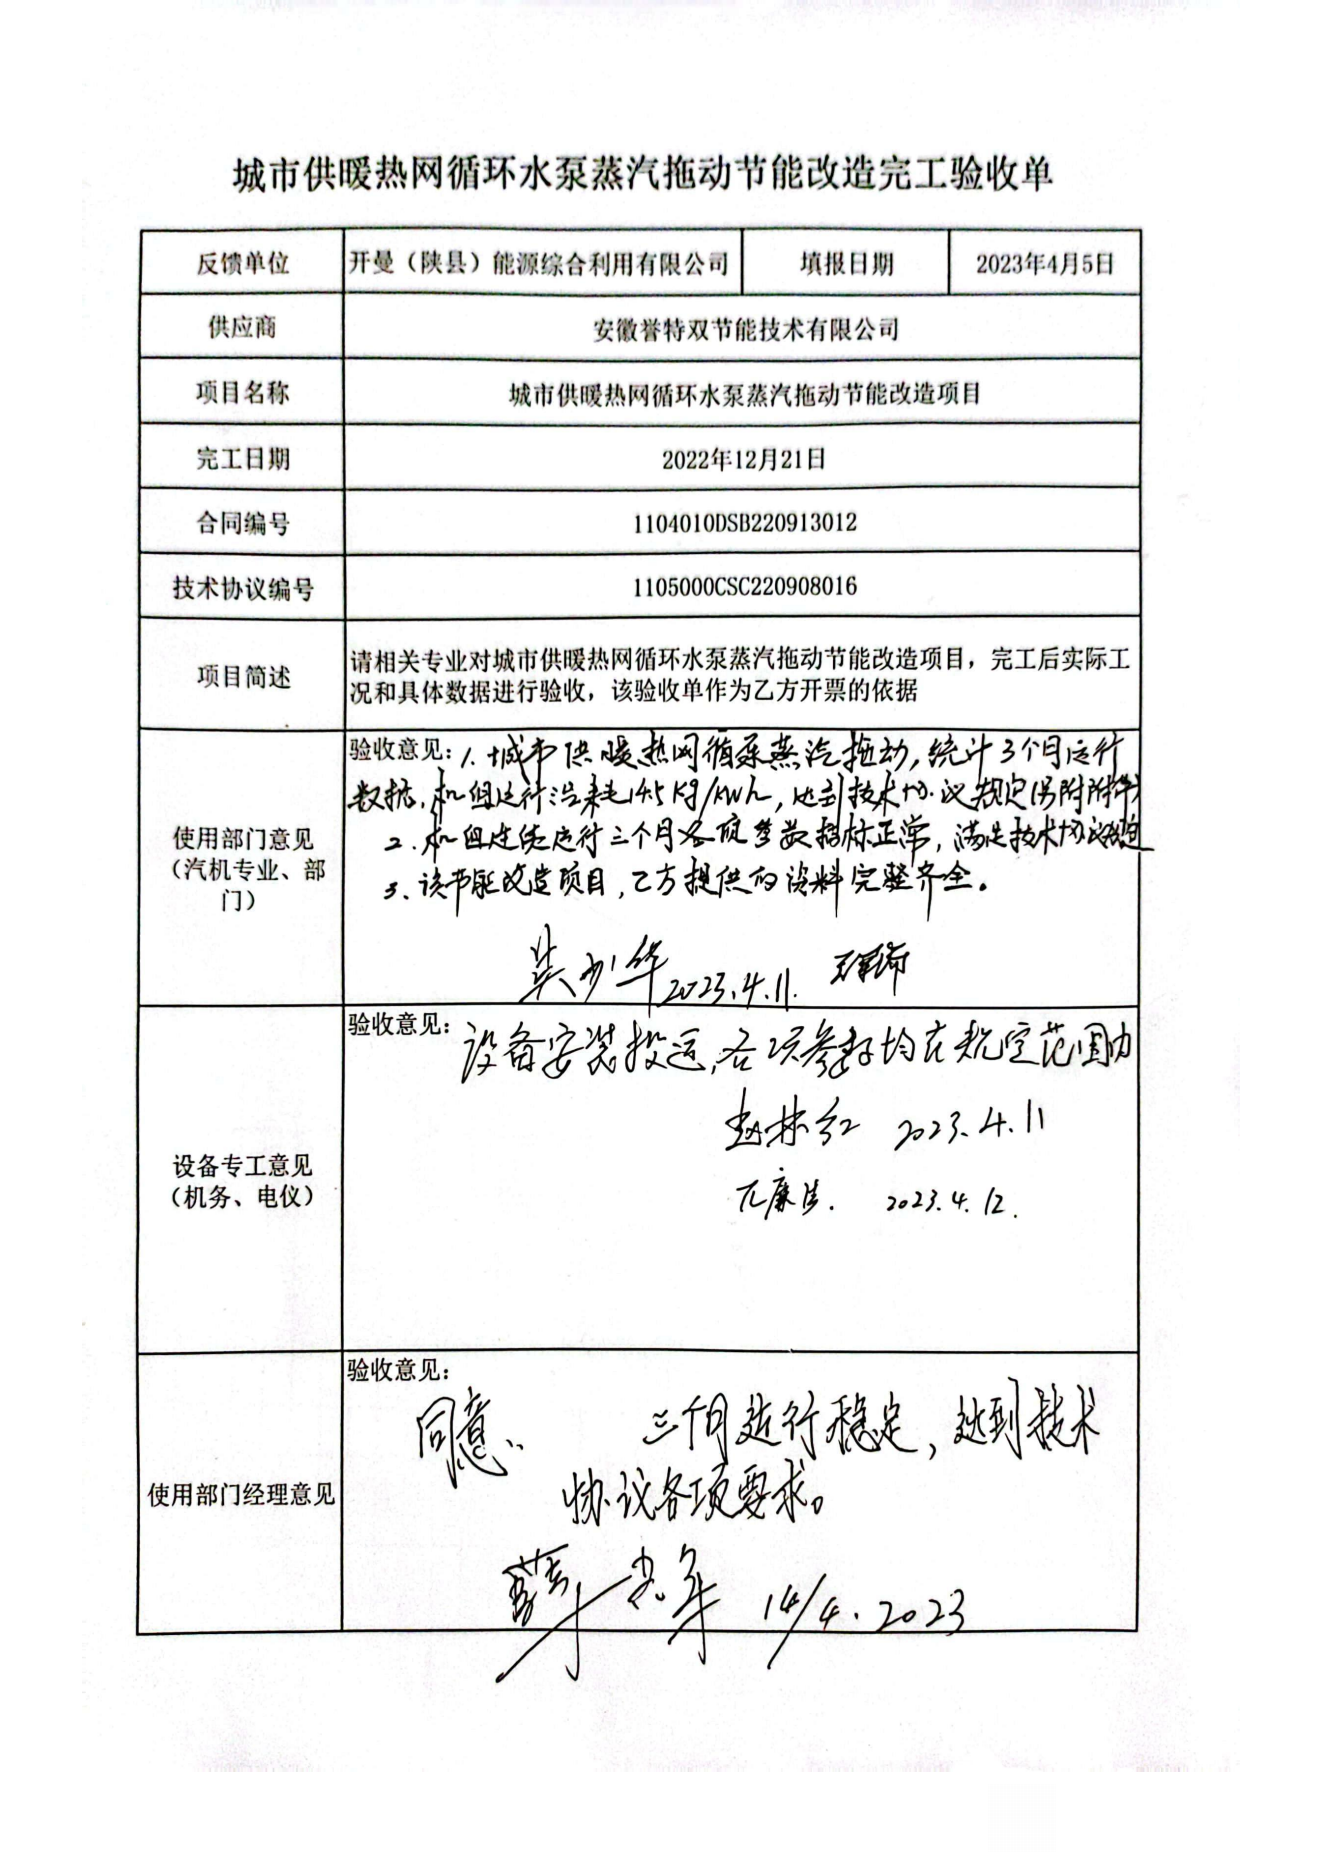 城市供暖热网循环水泵蒸汽拖动节能改造完工验收单
反馈单位 开曼（陕县）能源综合利用有限公司 填报日期 2023年4月5日
供应商 安徽誉特双节能技术有限公司
项目名称 城市供暖热网循环水泵蒸汽拖动节能改造项目
完工日期 2022年12月21日
合同编号 1104010DSB220913012
技术协议编号 1105000CSC220908016
项目简述 请相关专业对城市供暖热网循环水泵蒸汽拖动节能改造项目，完工后实际工
况和具体数据进行验收，该验收单作为乙方开票的依据
使用部门意见
（汽机专业、部
门）
验收意见：1. 城市供暖热网循泵蒸汽拖动，统计3个月运行
数据，机组运行汽耗14.5kg/kwh，达到技术协议规定
2. 机组连续运行三个月各项参数指标正常，满足技术协议
3、该节能改造项目，乙方提供的资料完整齐全。
吴少华 2023.4.11.
设备专工意见
（机务、电仪）
验收意见：设备安装投运，各项参数均在规定范围内
2023.4.11
2023.4.12.
使用部门经理意见
验收意见：
同意。 三个月运行稳定，达到技术
协议各项要求。
14/4.2023